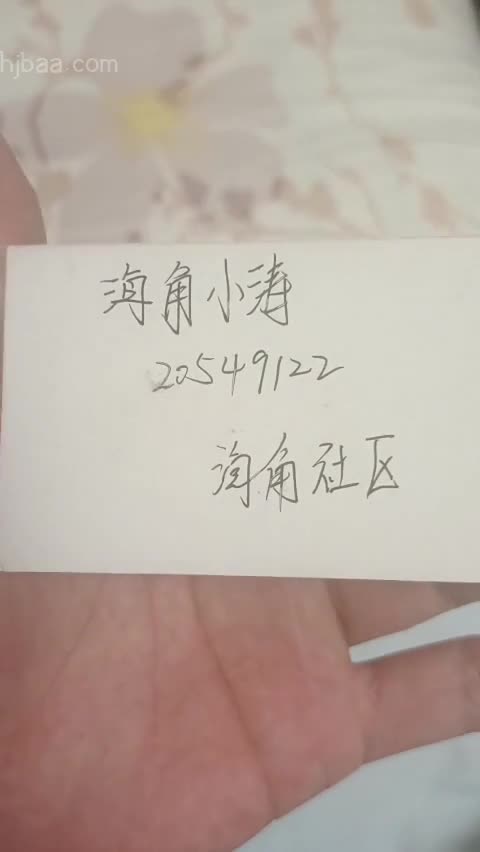 hjbaa.com
海角小涛
20549122
海角社区